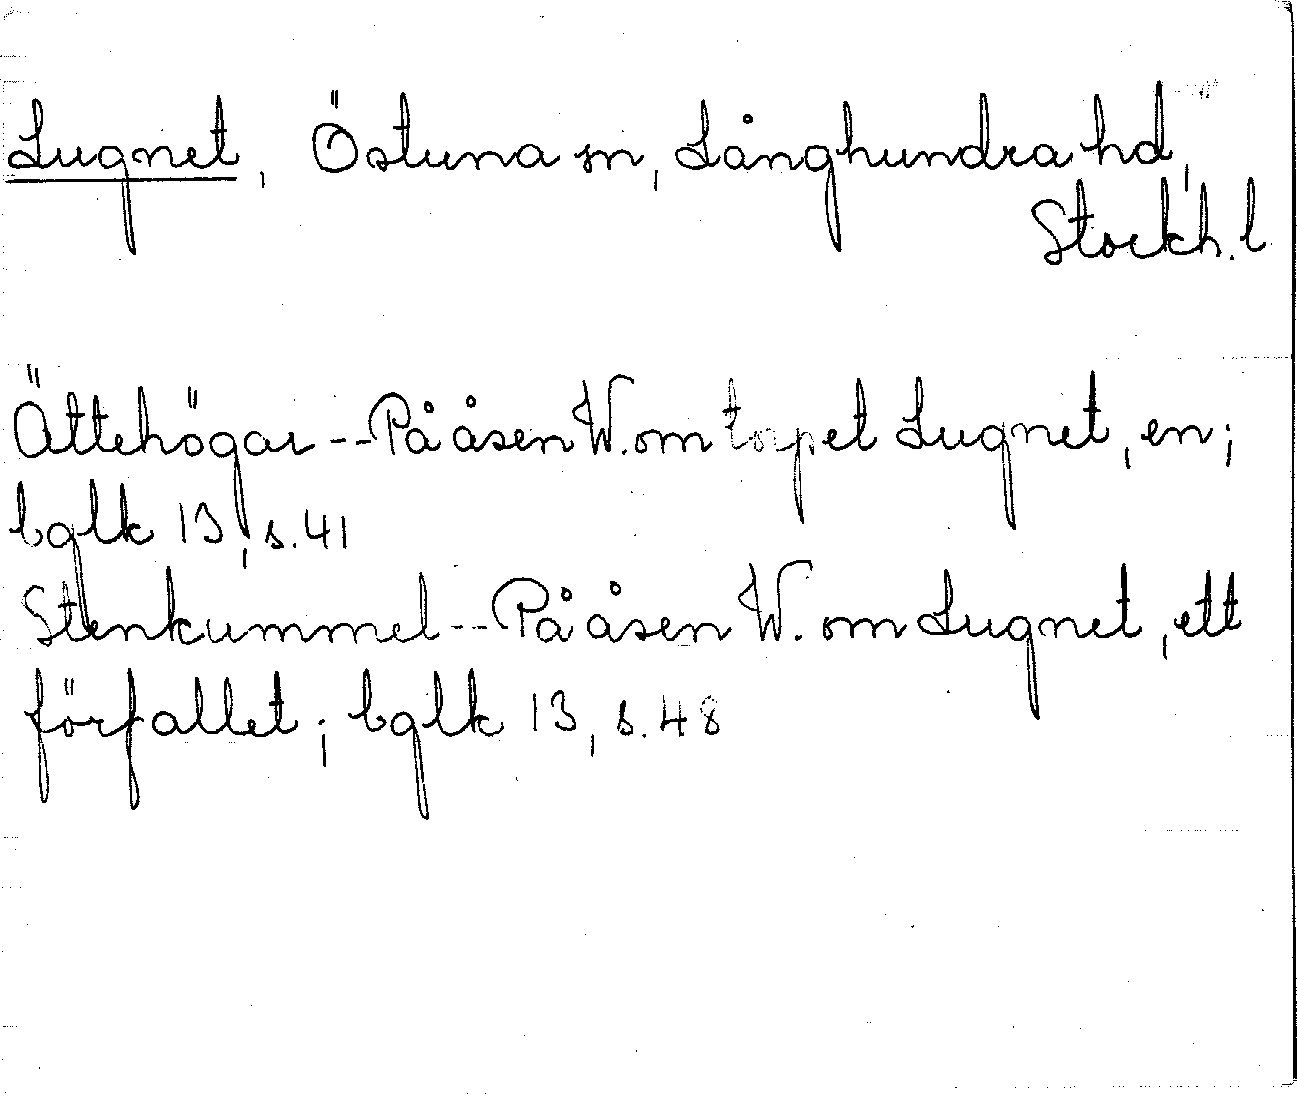 Lugnet, Östuna sn, Långhundra hd,
Stockh. l
Ättehögar -- På åsen W. om torpet Lugnet, en;
bglk 13, s. 41
Stenkummel -- På åsen W. om Lugnet, ett
förfallet; bglk 13, s. 48